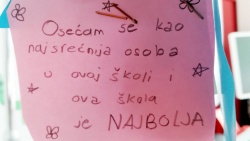 Osećam se kao
najsrećnija osoba
u ovoj školi i
ova škola
je NAJBOLJA